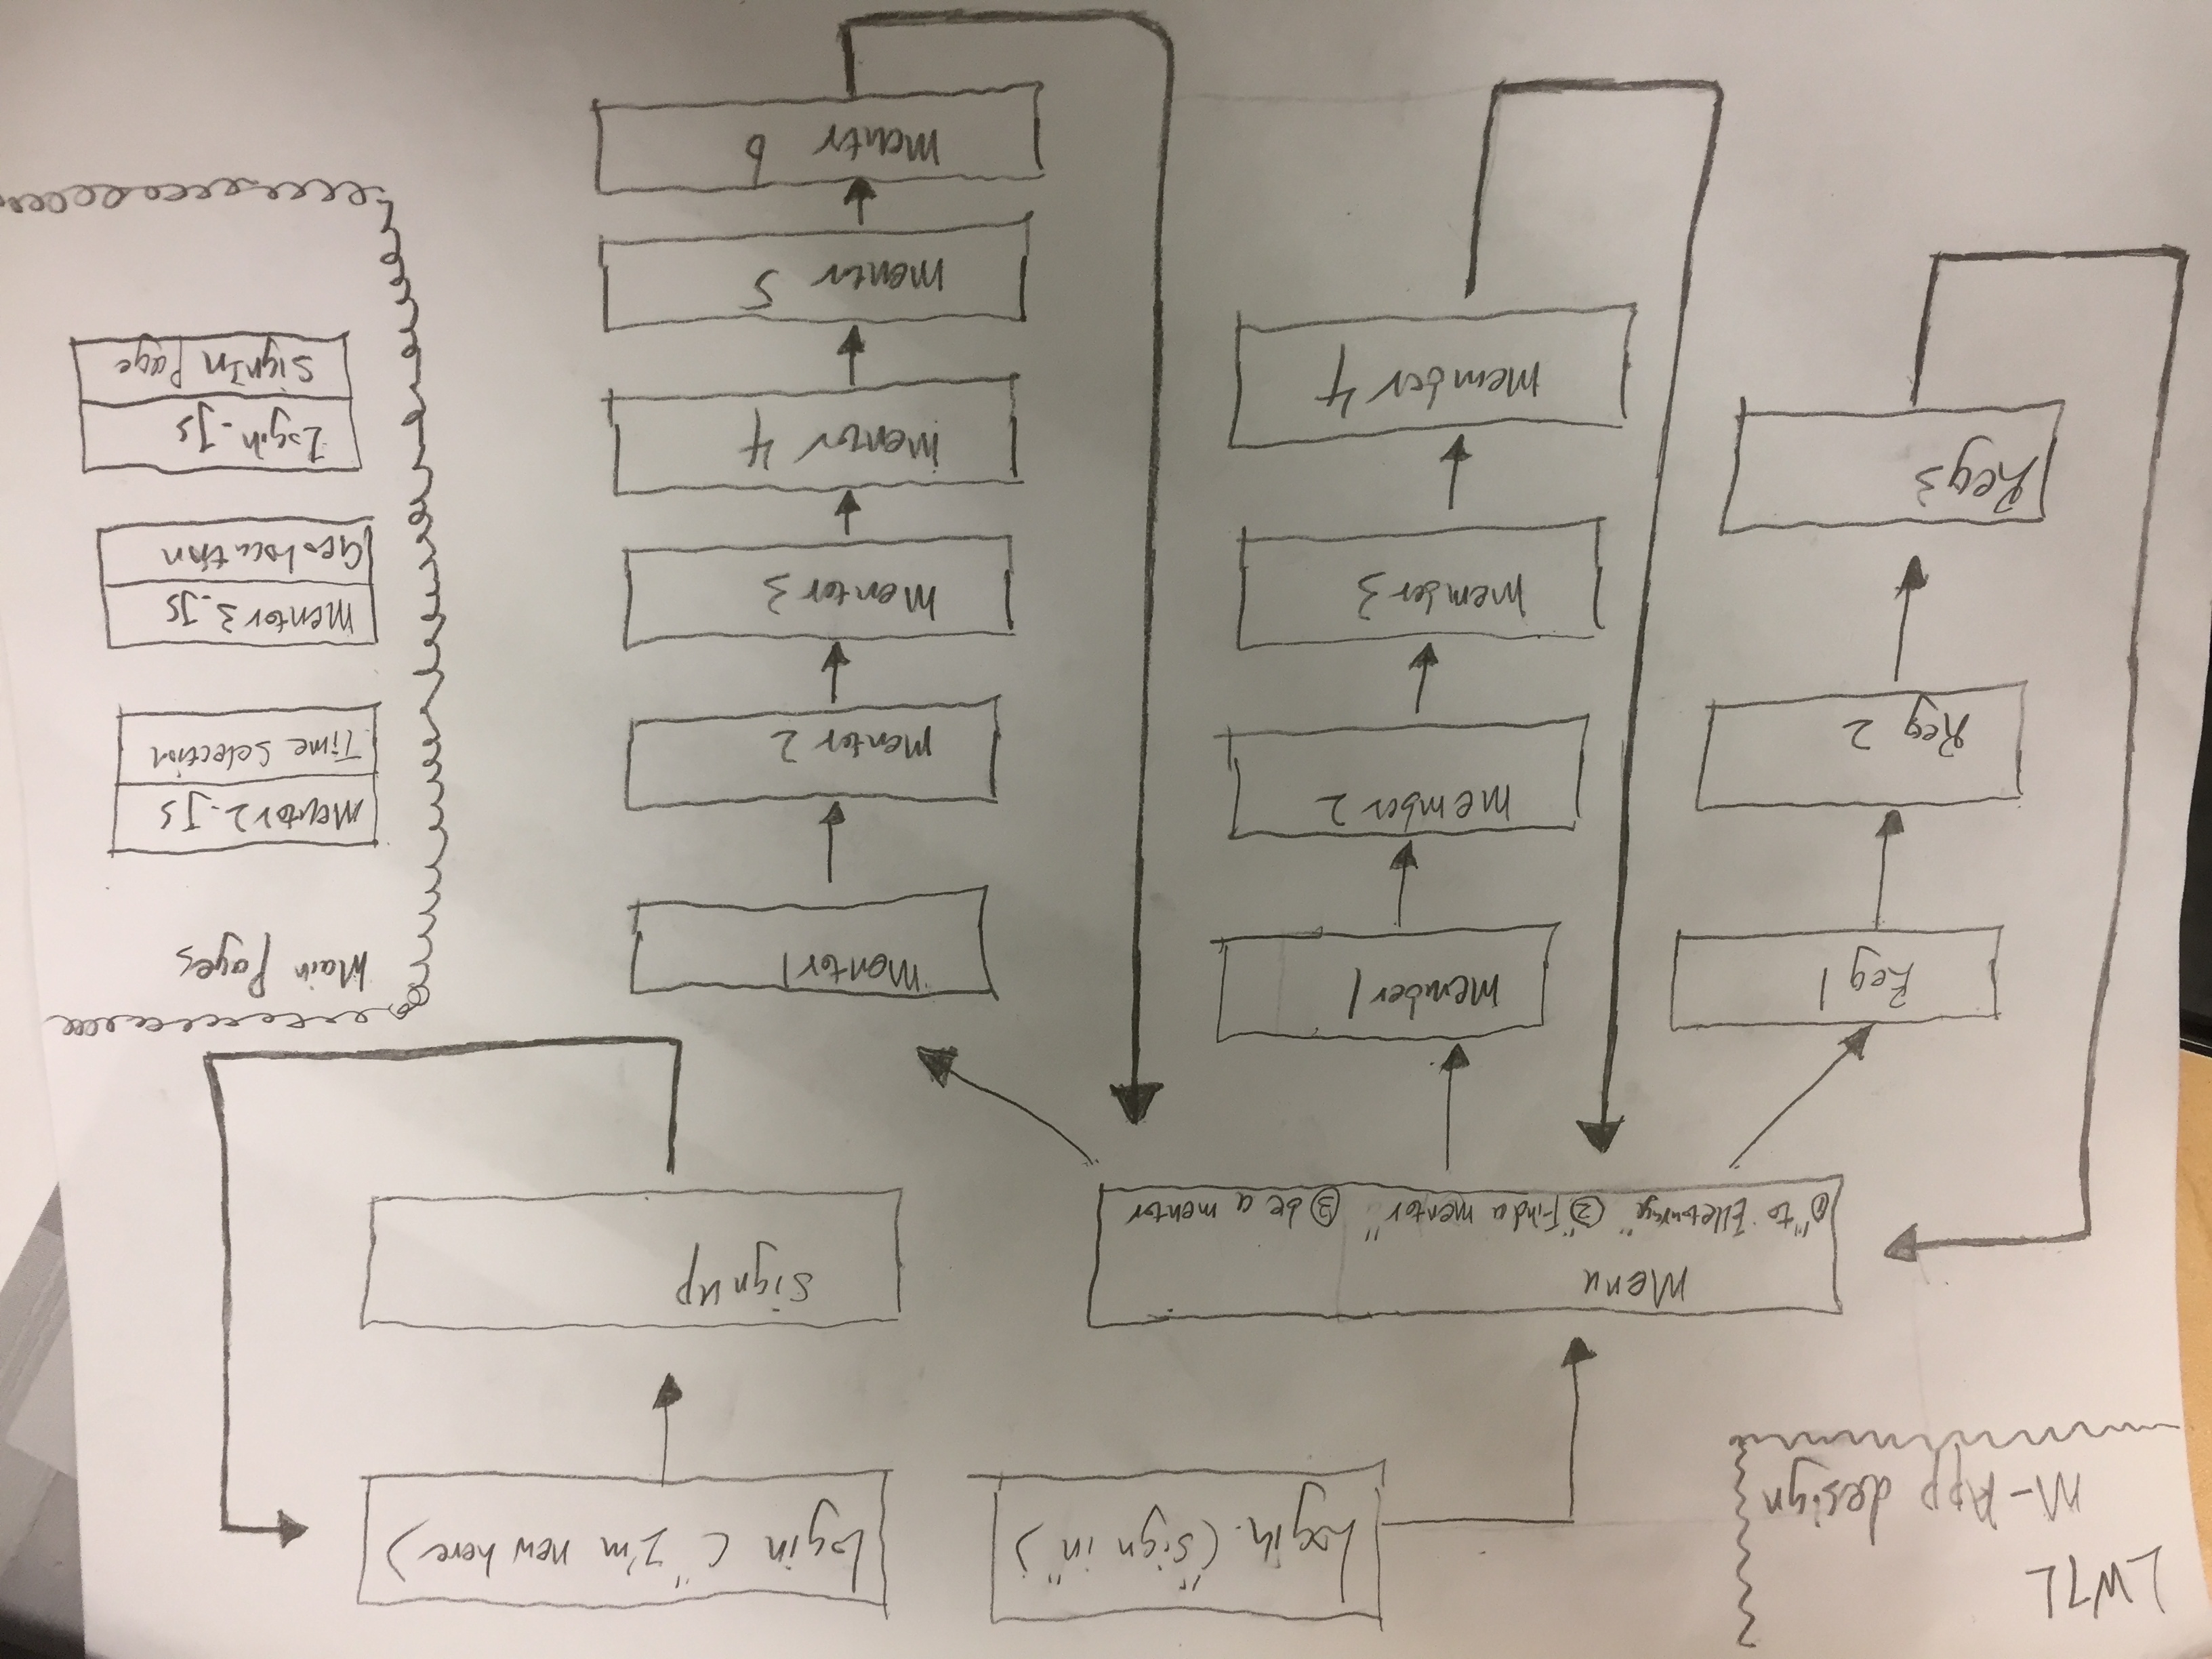 LW7L
M-App design
Login. ("sign in")
Login ("I'm new here)
Menu
① "to Elletourage" ② "Find a mentor" ③ be a mentor
sign up
Reg 1
Reg 2
Reg 3
member 1
member 2
member 3
member 4
Mentor 1
Mentor 2
Mentor 3
Mentor 4
mentor 5
Mentor 6
Main Pages
Mentor 2.JS
Time Selection
Mentor 3.JS
GeoLocation
Login.JS
SignIn Page